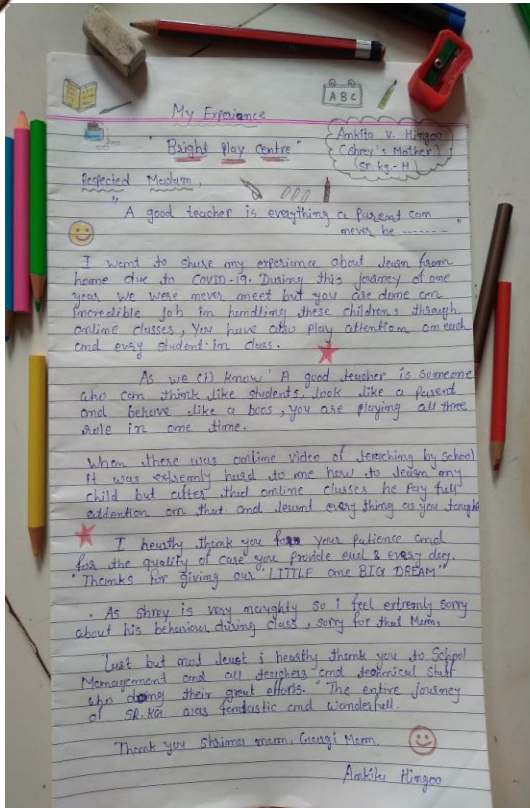 ABC
My Experiance
Ankita V. Hingoo
(Shrey's Mother)
(Sr. kg.-H)
"Bright play centre"
Respected Madam,
"A good teacher is everything a parent can
never be ........"
I want to share my experience about learn from
home due to COVID-19. During this journey of one
year we were never meet but you are done an
incredible job in handling these childrens through
online classes, you have also play attention on each
and every student in class.
As we (i) know 'A good teacher is someone
who can think like students, look like a parent
and behave like a boos, you are playing all three
role in one time.
When there was online video of teaching by school
it was extremly hard to me how to learn my
child but after that online classes he pay full
attention on that and learnt every thing as you taught
I hearthy thank you for your patience and
for the quality of care you provide each & every day.
"Thanks for giving our "LITTLE one BIG DREAM"
. As shrey is very naughty so i feel extremly sorry
about his behaviour during class, sorry for that Mam,
Last but not least i hearthy thank you to School
Management and all teachers and technical staff
who doing their great efforts. "The entire journey
of SR.KG was fantastic and wonderfull.
Thank you mam, Gargi Mam.
Ankita Hingoo